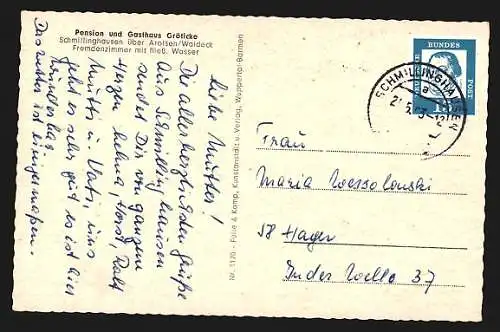 Pension und Gasthaus Gröticke
Schmillinghausen über Arolsen/Waldeck
Fremdenzimmer mit fließ. Wasser
Liebe Mutter!
Die allerherzlichsten Grüße
aus Schmillinghausen
sendet Dir von ganzem
Herzen Helma, Horst, Ralf
Mutti u. Vati, uns
geht es sehr gut es ist hier
wunderbar
Das Wetter ist einigermaßen.
Nr. 1170 - Foto & Kunstanstalt u. Verlag, Wuppertal-Barmen
DEUTSCHE
BUNDES
POST
SCHMILLINGHAUSEN
a
Frau
Maria
58 Hagen
In der Welle 37